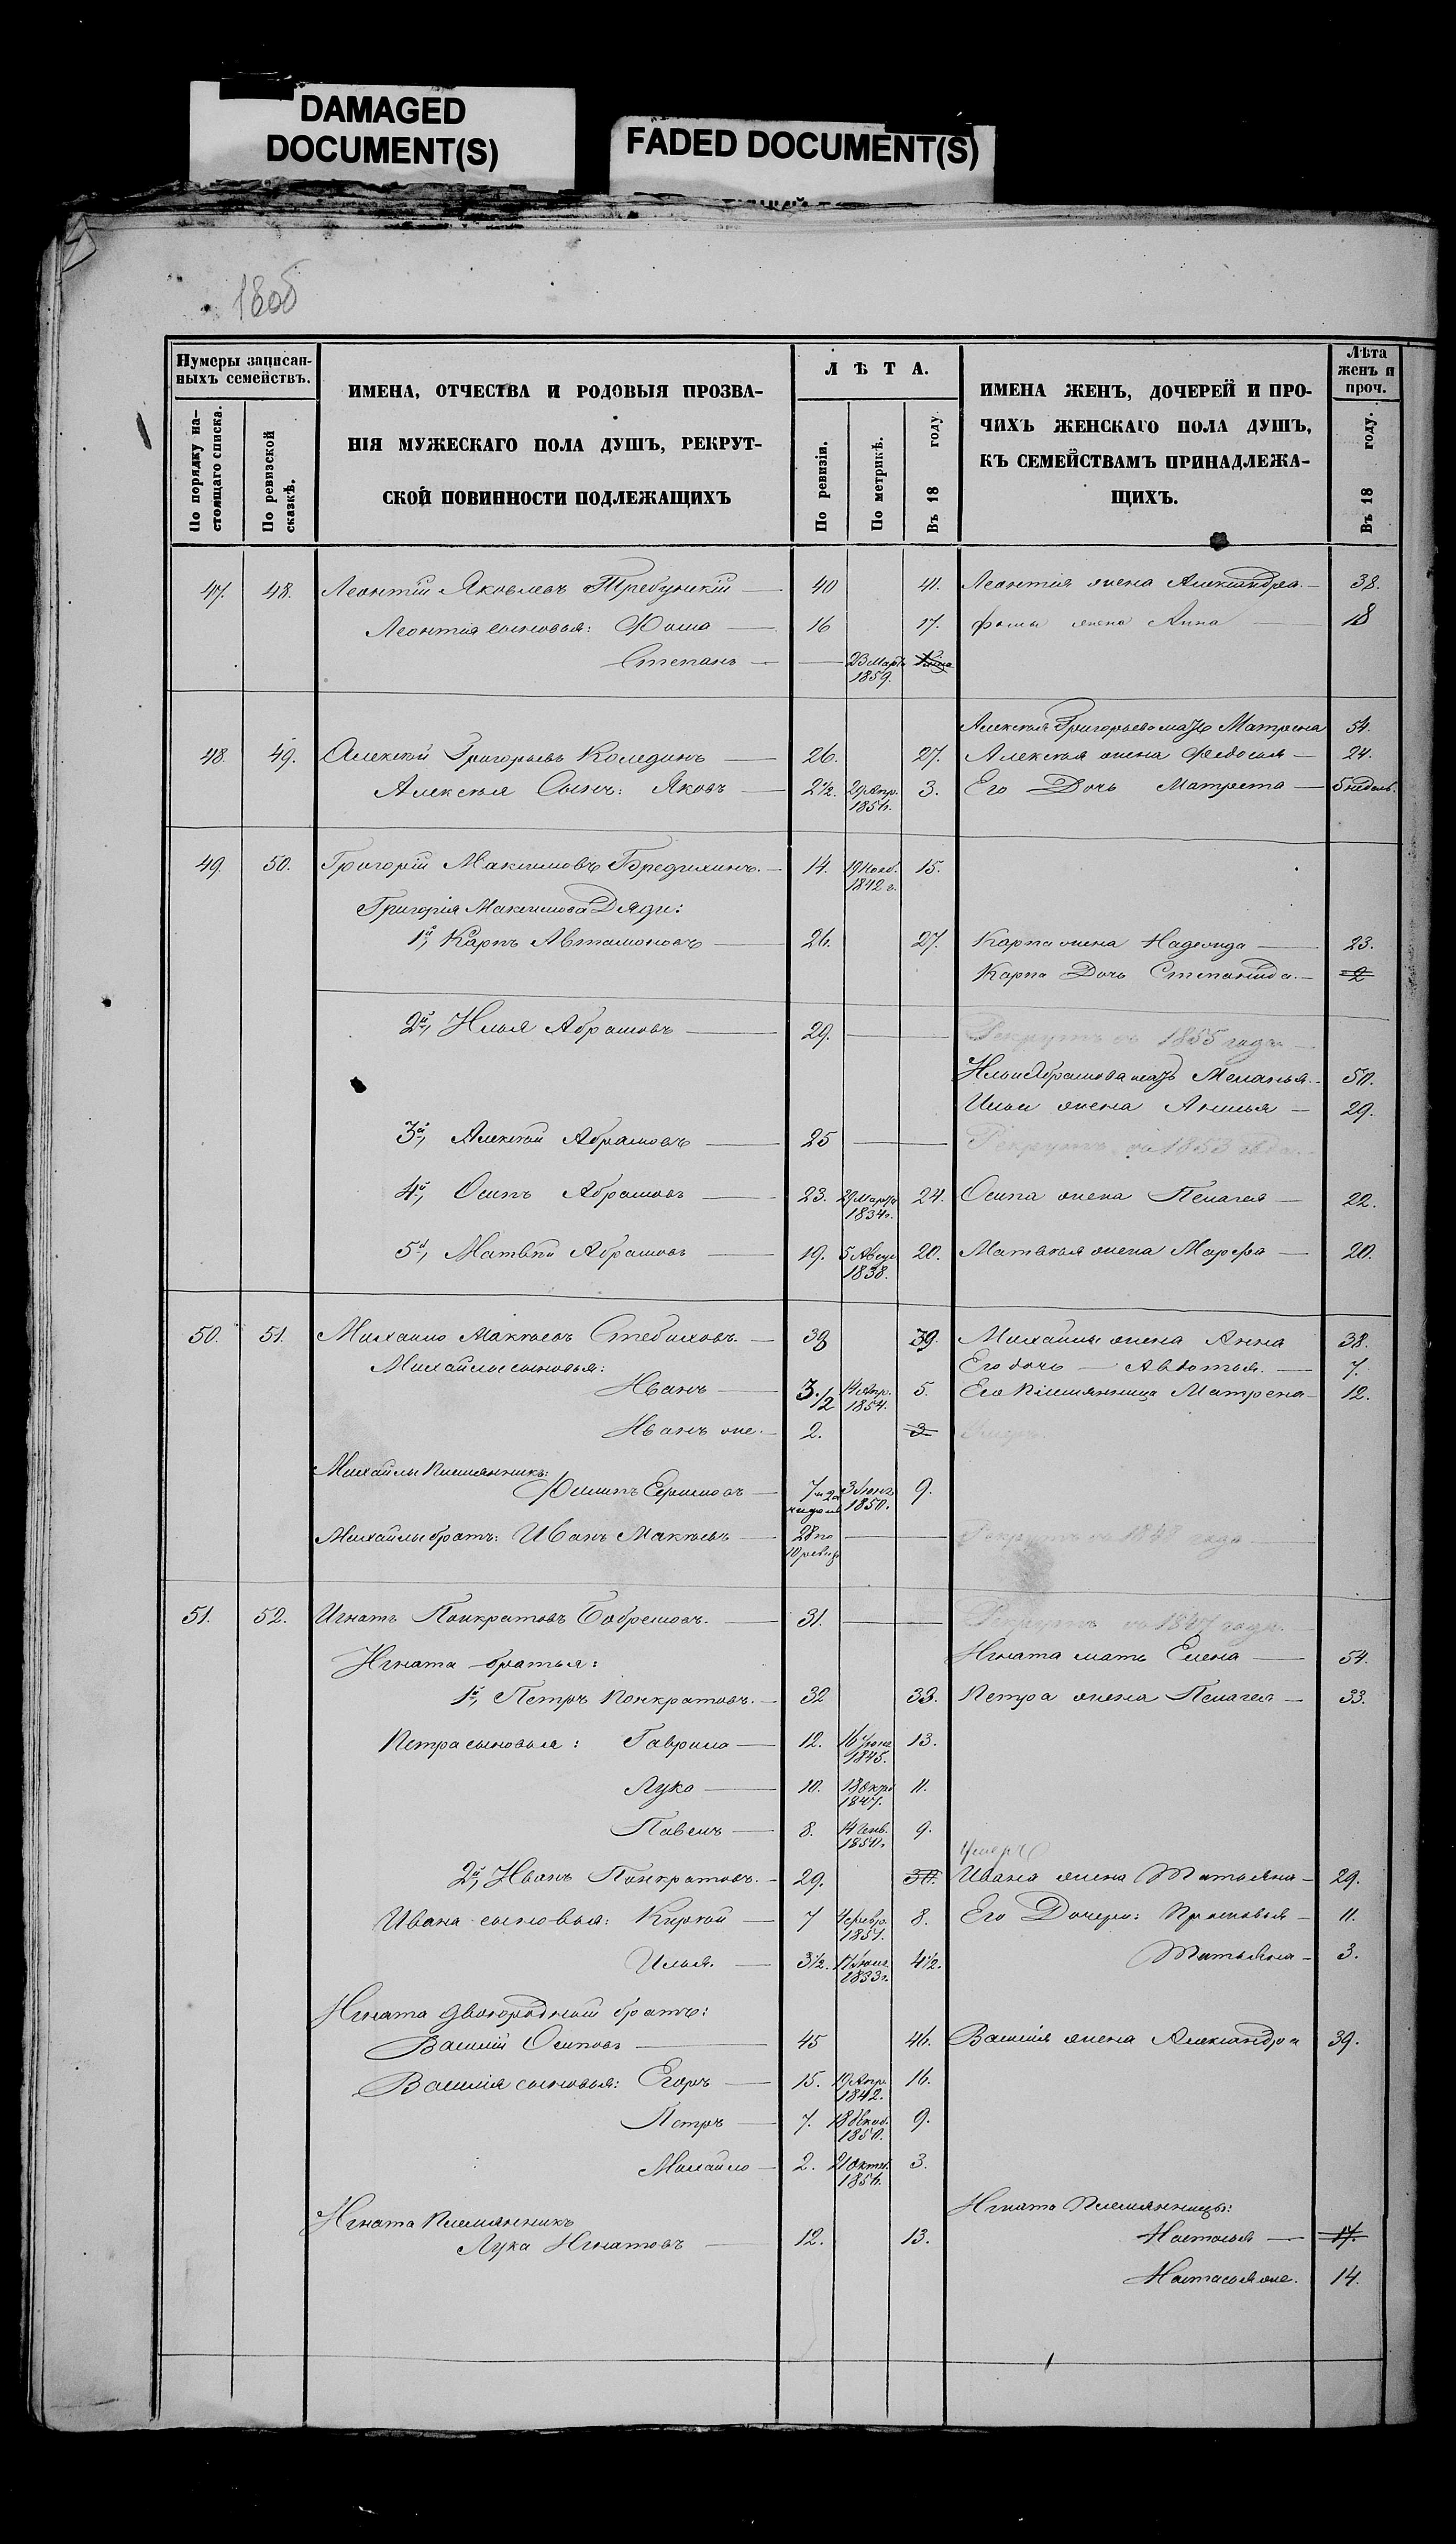 DAMAGED
DOCUMENT(S)
FADED DOCUMENT(S)
180об
Нумеры записан-
ныхъ семействъ.
По порядку на-
стоящаго списка.
По ревизской
сказкѣ.
ИМЕНА, ОТЧЕСТВА И РОДОВЫЯ ПРОЗВА-
НІЯ МУЖЕСКАГО ПОЛА ДУШЪ, РЕКРУТ-
СКОЙ ПОВИННОСТИ ПОДЛЕЖАЩИХЪ
ЛѢТА.
По ревизіи.
По метрикѣ.
Въ 18 году.
ИМЕНА ЖЕНЪ, ДОЧЕРЕЙ И ПРО-
ЧИХЪ ЖЕНСКАГО ПОЛА ДУШЪ,
КЪ СЕМЕЙСТВАМЪ ПРИНАДЛЕЖА-
ЩИХЪ.
Лѣта
женъ и
проч.
Въ 18 году.
47. 48. Леонтій Яковлевъ Требунскій 40 41. Леонтія жена Александра 38.
Леонтія сыновья: Фома 16 17. Фомы жена Анна 18
Степанъ 23 Март. 1859.
Алексѣя Григорьева мать Матрена 54.
48. 49. Алексѣй Григорьевъ Колединъ 26. 27. Алексѣя жена Федосья 24.
Алексѣя Сынъ: Яковъ 2½. 29 Апр. 1856. 3. Его Дочь Матрена 5 недѣль.
49. 50. Григорій Максимовъ Бредихинъ. 14. 19 Нояб. 1842 г. 15.
Григорія Максимова Дяди:
1й, Карпъ Автамоновъ 26. 27. Карпа жена Надежда 23.
Карпа Дочь Степанида. 2
2й, Илья Абрамовъ 29. Рекрутъ съ 1855 года
Ильи Абрамова мать Меланья 50.
Ильи жена Анисья 29.
3й, Алексѣй Абрамовъ 25 Рекрутъ съ 1853 года
4й, Осипъ Абрамовъ 23. 29 Марта 1834 г. 24. Осипа жена Пелагея 22.
5й, Матвѣй Абрамовъ 19. 5 Авгус. 1838. 20. Матвѣя жена Марфа 20.
50. 51. Михайло Макѣевъ Стебиховъ. 38 39. Михайлы жена Анна 38.
Михайлы сыновья: Его дочь Авдотья. 7.
Иванъ 3.½ 14 Апр. 1854. 5. Его племянница Матрена 12.
Иванъ же. 2. 3. Умеръ.
Михайлы племянникъ:
Филипъ Ефимовъ 7 3 Іюня 1850. 9.
Михайлы братъ: Иванъ Макѣевъ 28 по 10 ревиз. Рекрутъ съ 1848 года
51. 52. Игнатъ Панкратовъ Бобрешовъ. 31. Рекрутъ съ 1847 года.
Игната братья: Игната мать Елена 54.
1й, Петръ Панкратовъ. 32 33. Петра жена Пелагея 33.
Петра сыновья: Гаврило 12. 16 Іюля 1845. 13.
Лука 10. 18 Октр. 1847. 11.
Павелъ 8. 14 Генв. 1850. 9.
Умеръ
2й, Иванъ Панкратовъ. 29. 30. Ивана жена Татьяна 29.
Ивана сыновья: Кирѣй 7 4 февр. 1851. 8. Его Дочери: Прасковья 11.
Илья. 3½. 17 Іюля 1853 г. 4½. Татьяна 3.
Игната двоюродный братъ:
Василій Осиповъ 45 46. Василія жена Александра 39.
Василія сыновья: Егоръ 15. 19 Апр. 1842. 16.
Петръ 7. 18 Декаб. 1850. 9.
Михайло 2. 21 Октяб. 1856. 3.
Игната Племянникъ Игната Племянницы:
Лука Игнатовъ 12. 13. Настасья 17.
Настасья же. 14.